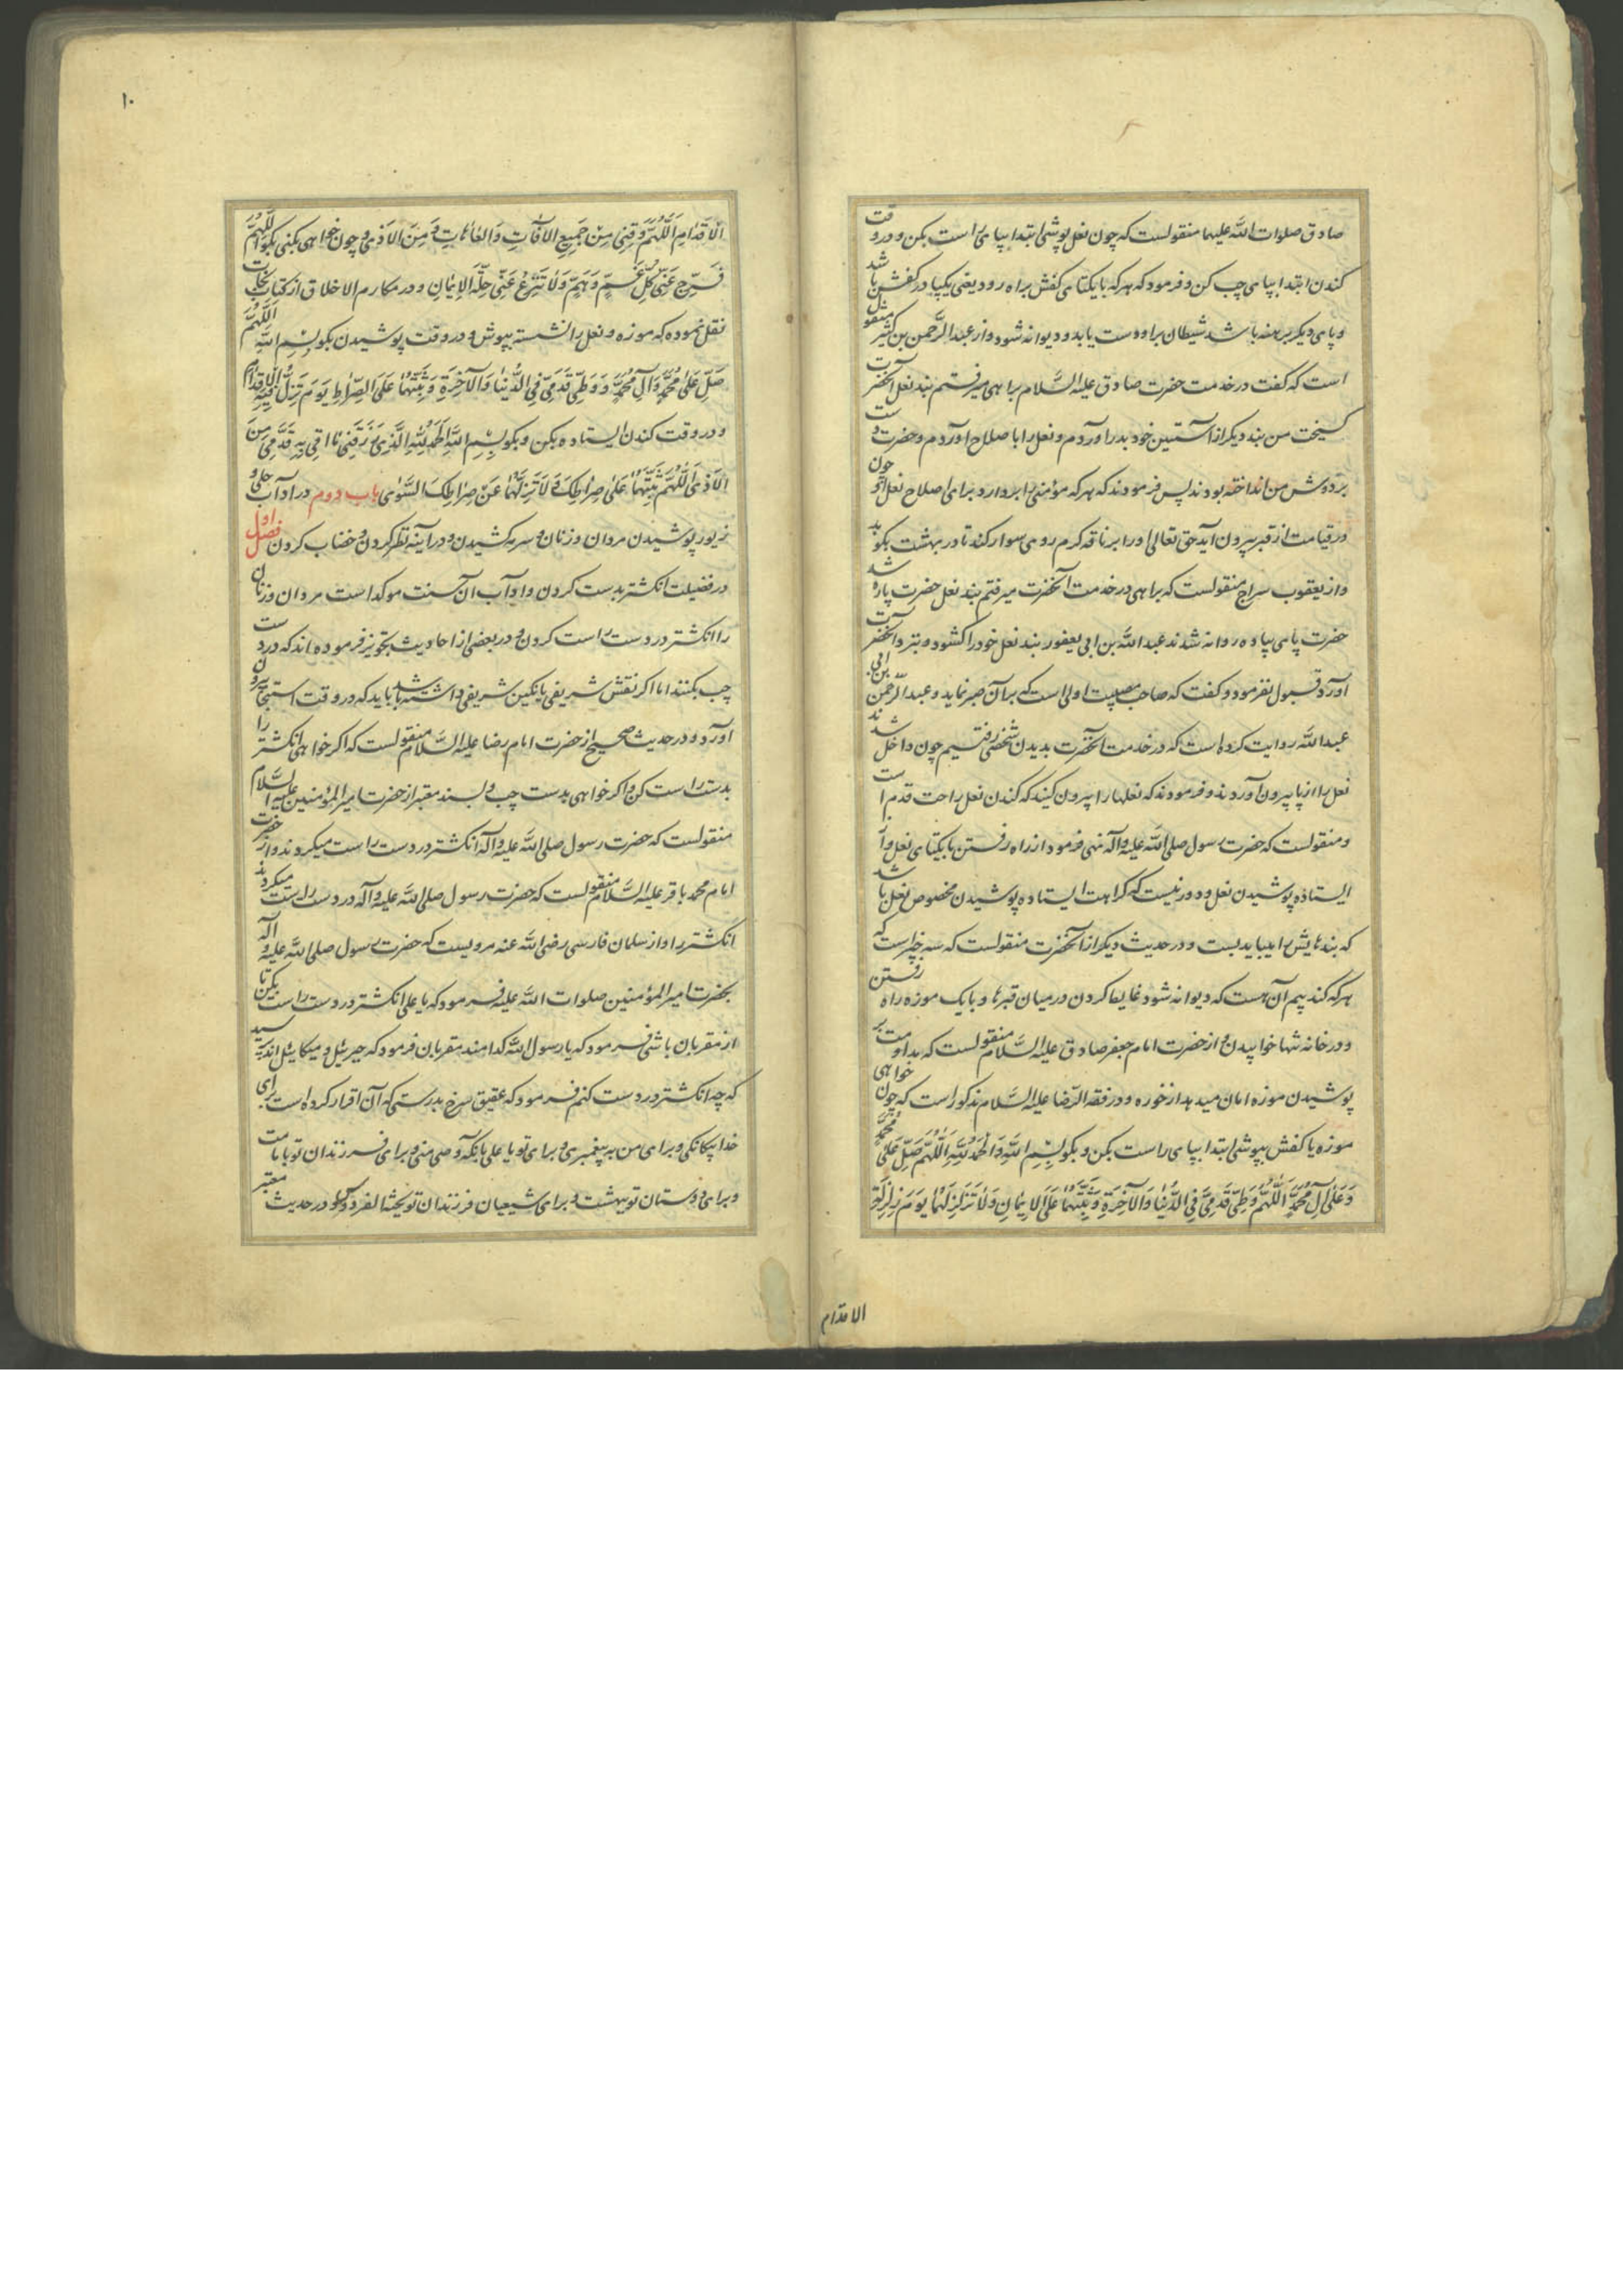 صادق صلوات الله علیهما منقولست که چون نعل پوشی ابتدا بپای راست بکن و در وقت
کندن ابتدا بپای چپ کن و فرمود که هر که با یکتای کفش براه رود یعنی یکپا در کفش باشد
و پای دیگر برهنه باشد شیطان براو دست یابد و دیوانه شود و از عبد الرَّحمن بن کثیر منقول
است که گفت در خدمت حضرت صادق علیه السَّلام براهی میرفتم بند نعل آنحضرت
گسیخت من بند دیگر از آستین خود بدر آوردم و نعل را باصلاح آوردم و حضرت دست
بر دوش من انداخته بودند پس فرمودند که هر که مؤمنی را بردارد برای اصلاح نعل او چون
در قیامت از قبر بیرون آید حق تعالی او را بر ناقه کرم روی سوار کند تا در بهشت بکوبد
و از یعقوب سراج منقولست که براهی در خدمت آنحضرت میرفتم بند نعل حضرت پاره شد
حضرت پای پیاده روانه شدند عبد الله بن ابی یعفور بند نعل خود را گشود و بنزد آنحضرت
آورد قبول نفرمود و گفت که صاحب مصیبت اولی است که بر آن صبر نماید و عبد الرَّحمن بن ابی
عبد الله روایت کرده است که در خدمت آنحضرت بدیدن شخصی رفتیم چون داخل شدند
نعل را از پا بیرون آوردند و فرمودند که نعلها را بیرون کنید که کندن نعل راحت قدم است
و منقولست که حضرت رسول صلی الله علیه وآله نهی فرمود از راه رفتن با یکتای نعل و از
ایستاده پوشیدن نعل و دور نیست که کراهت ایستاده پوشیدن مخصوص نعل باشد
که بندهایش را میباید بست و در حدیث دیگر از آنحضرت منقولست که سه چیز است که
هر که کند بیم آن هست که دیوانه شود غایط کردن در میان قبرها و با یک موزه راه رفتن
و در خانه تنها خوابیدن و از حضرت امام جعفر صادق علیه السَّلام منقولست که مداومت بر
پوشیدن موزه امان میدهد از خوره و در فقه الرّضا علیه السَّلام مذکور است که چون خواهی
موزه یا کفش بپوشی ابتدا بپای راست بکن و بگو بِسْمِ اللهِ وَالْحَمْدُ لِلّهِ اَللّهُمَّ صَلِّ عَلی مُحَمَّدٍ
وَعَلی آلِ مُحَمَّدٍ اَللّهُمَّ وَطِّئْ قَدَمَیَّ فِی الدُّنْیا وَالْآخِرَةِ وَثَبِّتْهُما عَلَی الْاِیْمانِ وَلا تُزَلْزِلْهُما یَوْمَ زَلْزَلَةِ
الاقدام
۱۰
الْاَقْدامِ اَللّهُمَّ وَقِنی مِنْ جَمیعِ الْآفاتِ وَالْعاهاتِ وَمِنَ الْاَذی و چون خواهی بکنی بگو اَللّهُمَّ
فَرِّجْ عَنّی کُلَّ غَمٍّ وَهَمٍّ وَلا تَنْزِعْ عَنّی حِلَّةَ الْاِیمانِ و در مکارم الاخلاق از کتاب نجات
نقل نموده که موزه و نعل را نشسته بپوش و در وقت پوشیدن بگو بِسْمِ اللهِ اَللّهُمَّ
صَلِّ عَلی مُحَمَّدٍ وَآلِ مُحَمَّدٍ وَوَطِّئْ قَدَمَیَّ فِی الدُّنْیا وَالْآخِرَةِ وَثَبِّتْهُما عَلَی الصِّراطِ یَوْمَ تَزِلُّ فیهِ الْاَقْدامُ
و در وقت کندن ایستاده بکن و بگو بِسْمِ اللهِ اَلْحَمْدُ لِلّهِ الَّذی رَزَقَنی ما اَقی بِهِ قَدَمَیَّ مِنَ
الْاَذی اَللّهُمَّ ثَبِّتْهُما عَلی صِراطِکَ وَلا تُزِلَّهُما عَنْ صِراطِکَ السَّوِیِّ باب دوم در آداب حلی و
زیور پوشیدن مردان و زنان و سرمه کشیدن و در آینه نظر کردن و خضاب کردن فصل اول
در فضیلت انگشتر بدست کردن و آداب آن سنت موکد است مردان و زنان
را انگشتر در دست راست کردن و در بعضی از احادیث تجویز فرموده اند که در دست
چپ بکنند اما اگر نقش شریفی یا نگین شریفی داشته باشد باید که در وقت استنجا بیرون
آورد و در حدیث صحیح از حضرت امام رضا علیه السَّلام منقولست که اگر خواهی انگشتر را
بدست راست کن و اگر خواهی بدست چپ و بسند معتبر از حضرت امیر المؤمنین علیه السَّلام
منقولست که حضرت رسول صلی الله علیه وآله انگشتر در دست راست میکردند و از حضرت
امام محمد باقر علیه السَّلام منقولست که حضرت رسول صلی الله علیه وآله در دست راست میکردند
انگشتر را و از سلمان فارسی رضی الله عنه مرویست که حضرت رسول صلی الله علیه و آله
بحضرت امیر المؤمنین صلوات الله علیه فرمود که یا علی انگشتر در دست راست بکن تا
از مقربان باشی فرمود که یا رسول الله کدامند مقربان فرمود که جبرئیل و میکائیل اند پرسید
که چه انگشتر در دست کنم فرمود که عقیق سرخ بدرستی که آن اقرار کرده است برای
خدا بیگانگی و برای من به پیغمبری و برای تو یا علی بانکه وصی منی و برای فرزندان تو بامامت
و برای دوستان تو ببهشت و برای شیعیان فرزندان تو بجنت الفردوس و در حدیث معتبر